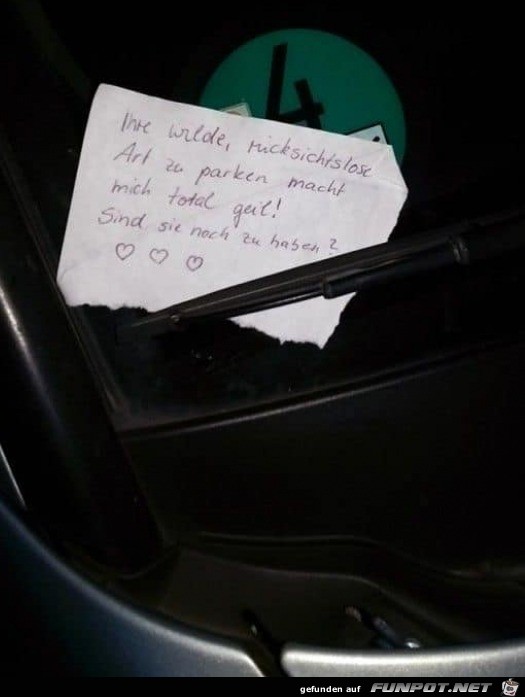 4
Ihre wilde, rücksichtslose
Art zu parken macht
mich total geil!
Sind sie noch zu haben?
♡ ♡ ♡
gefunden auf FUNPOT.NET